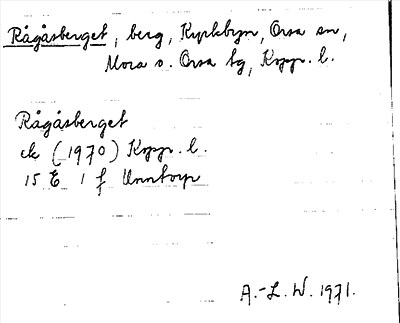 Rågåsberget, berg, Kyrkbyn, Orsa sn,
Mora o. Orsa tg, Kopp. l.
Rågåsberget
ek (1970) Kopp. l.
15 E 1 f Unntorp
A.-L. W. 1971.